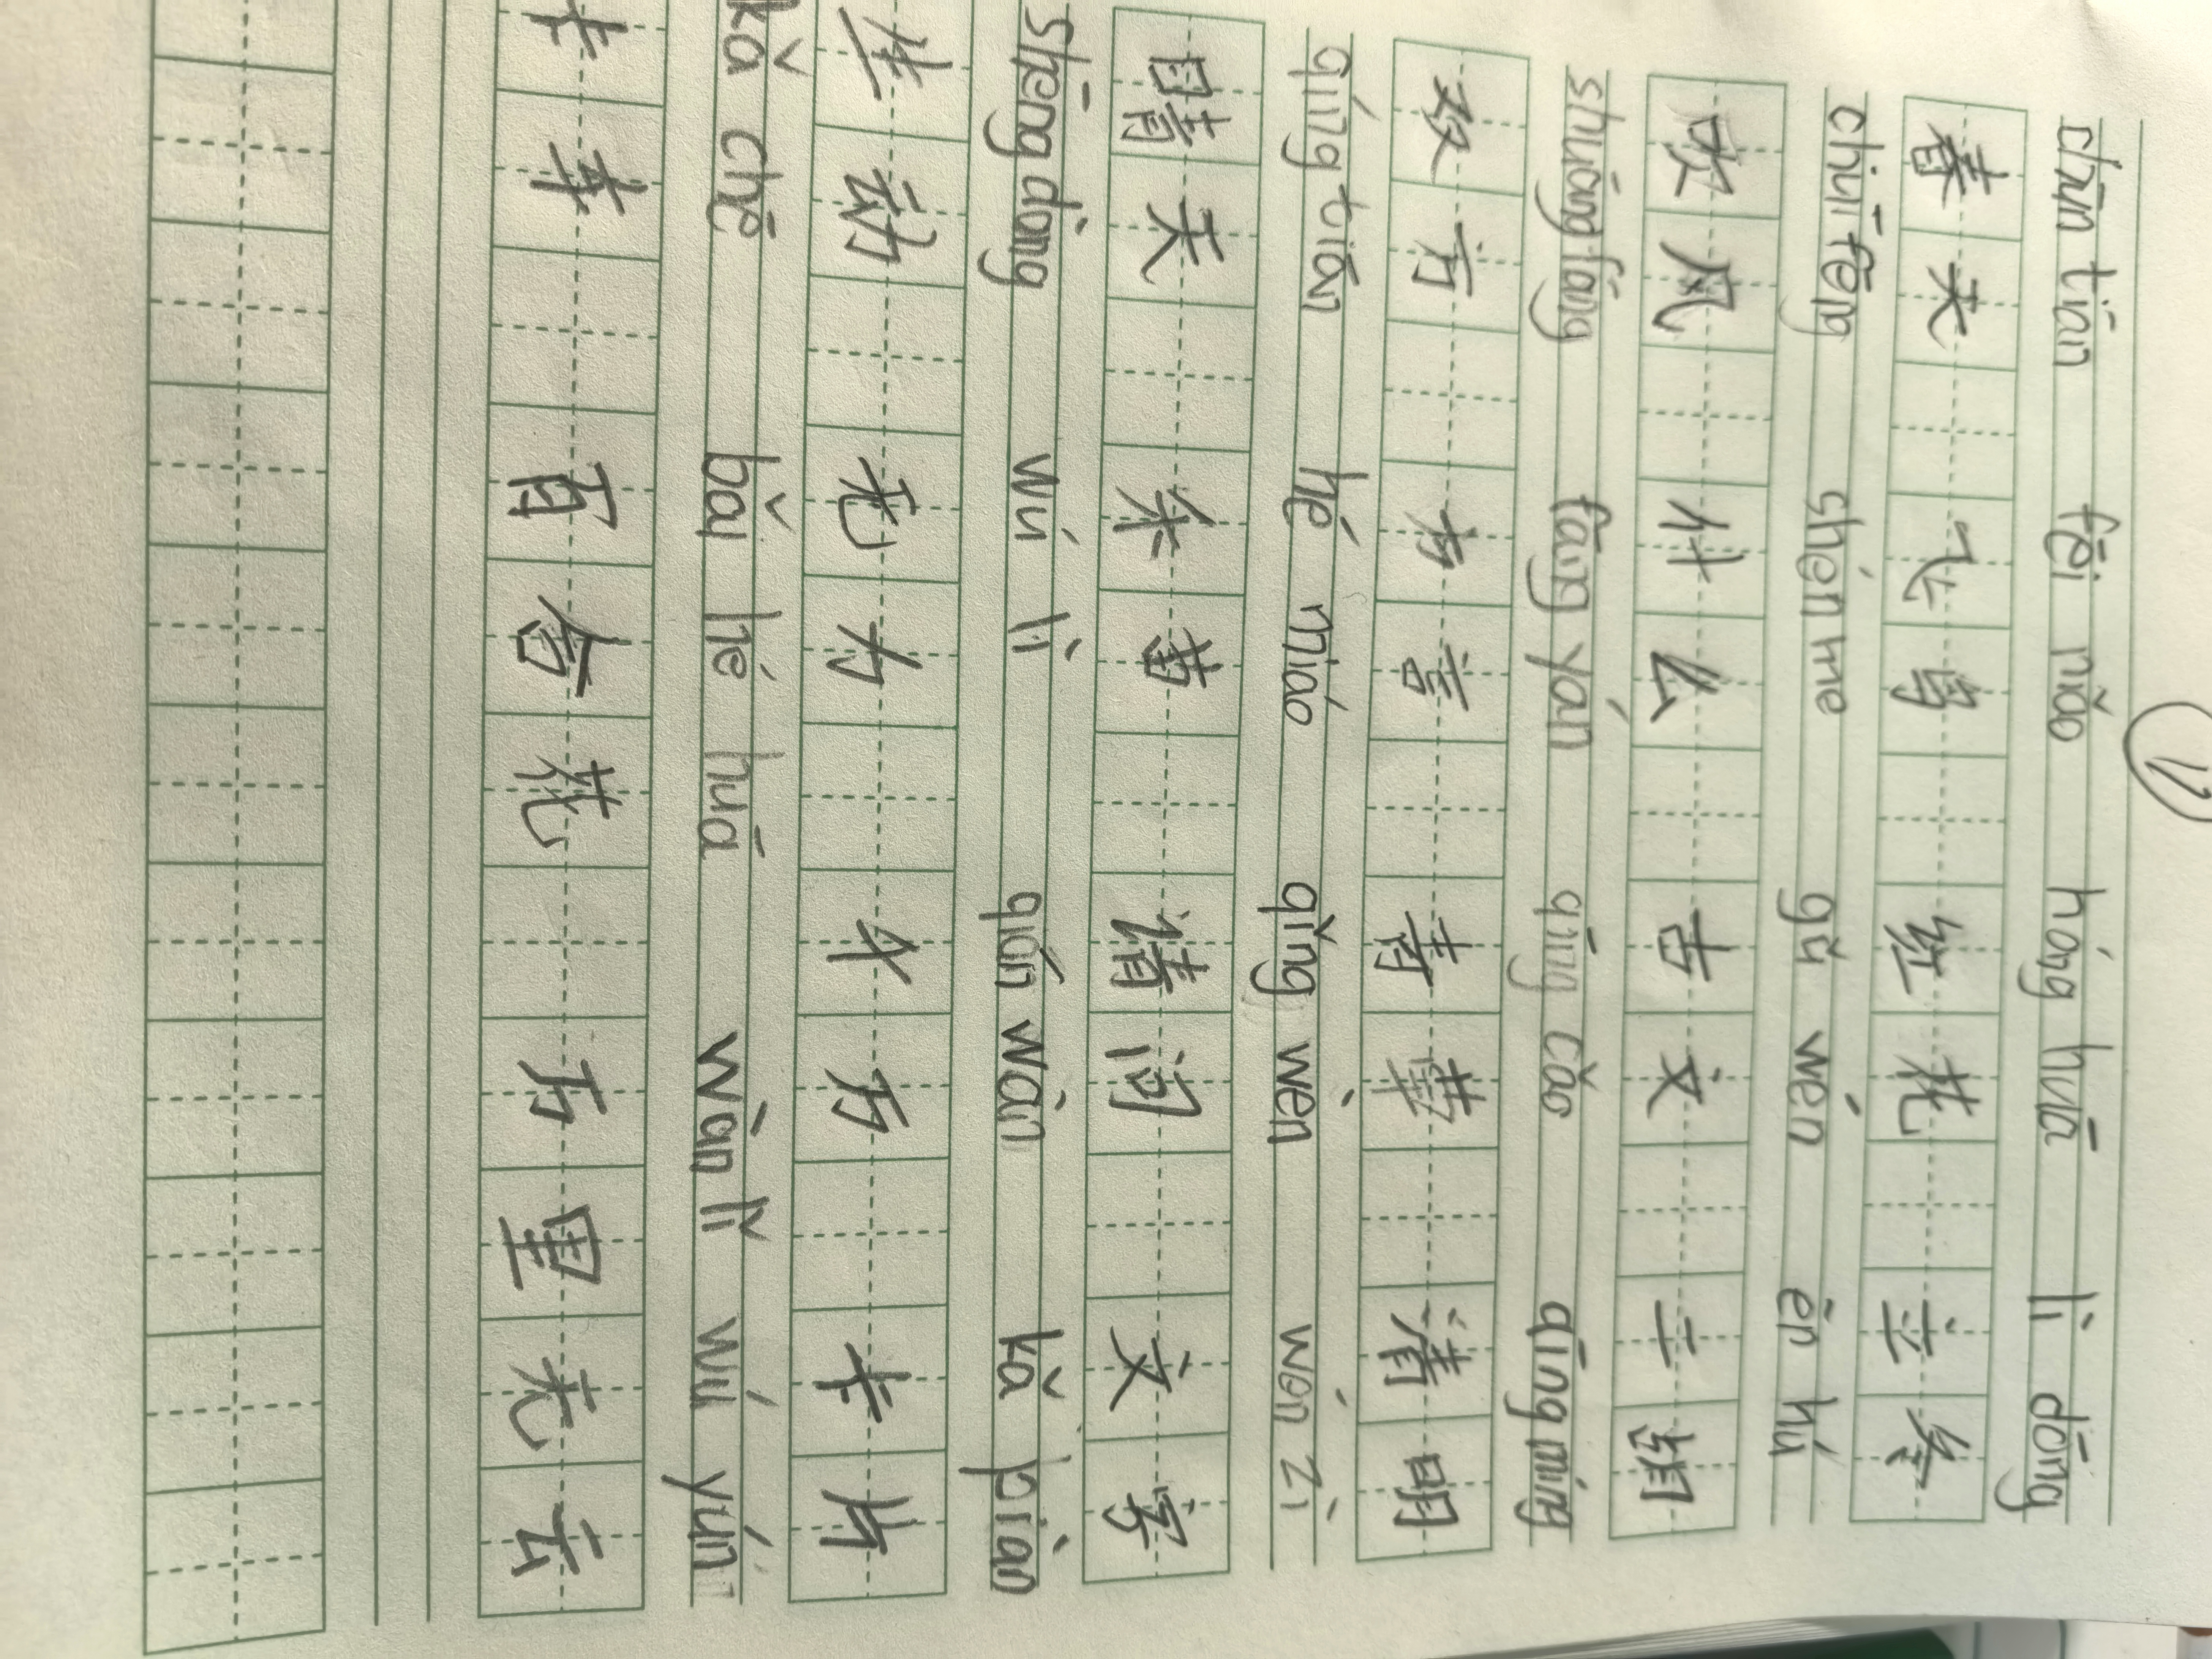 chūn tiān fēi niǎo hóng huā lì dōng
春天 飞鸟 红花 立冬
chuī fēng shén me gǔ wén èn hú
吹风 什么 古文 二
shuāng fāng fāng yán qīng cǎo qīng míng
双方 方言 青草 清明
qíng tiān hé miáo qǐng wèn wén zì
晴天 禾苗 请问 文字
shēng dòng wú lì qiān wàn kǎ piàn
生动 无力 千万 卡片
kǎ chē bǎi hé huā wàn lǐ wú yún
卡车 百合花 万里无云